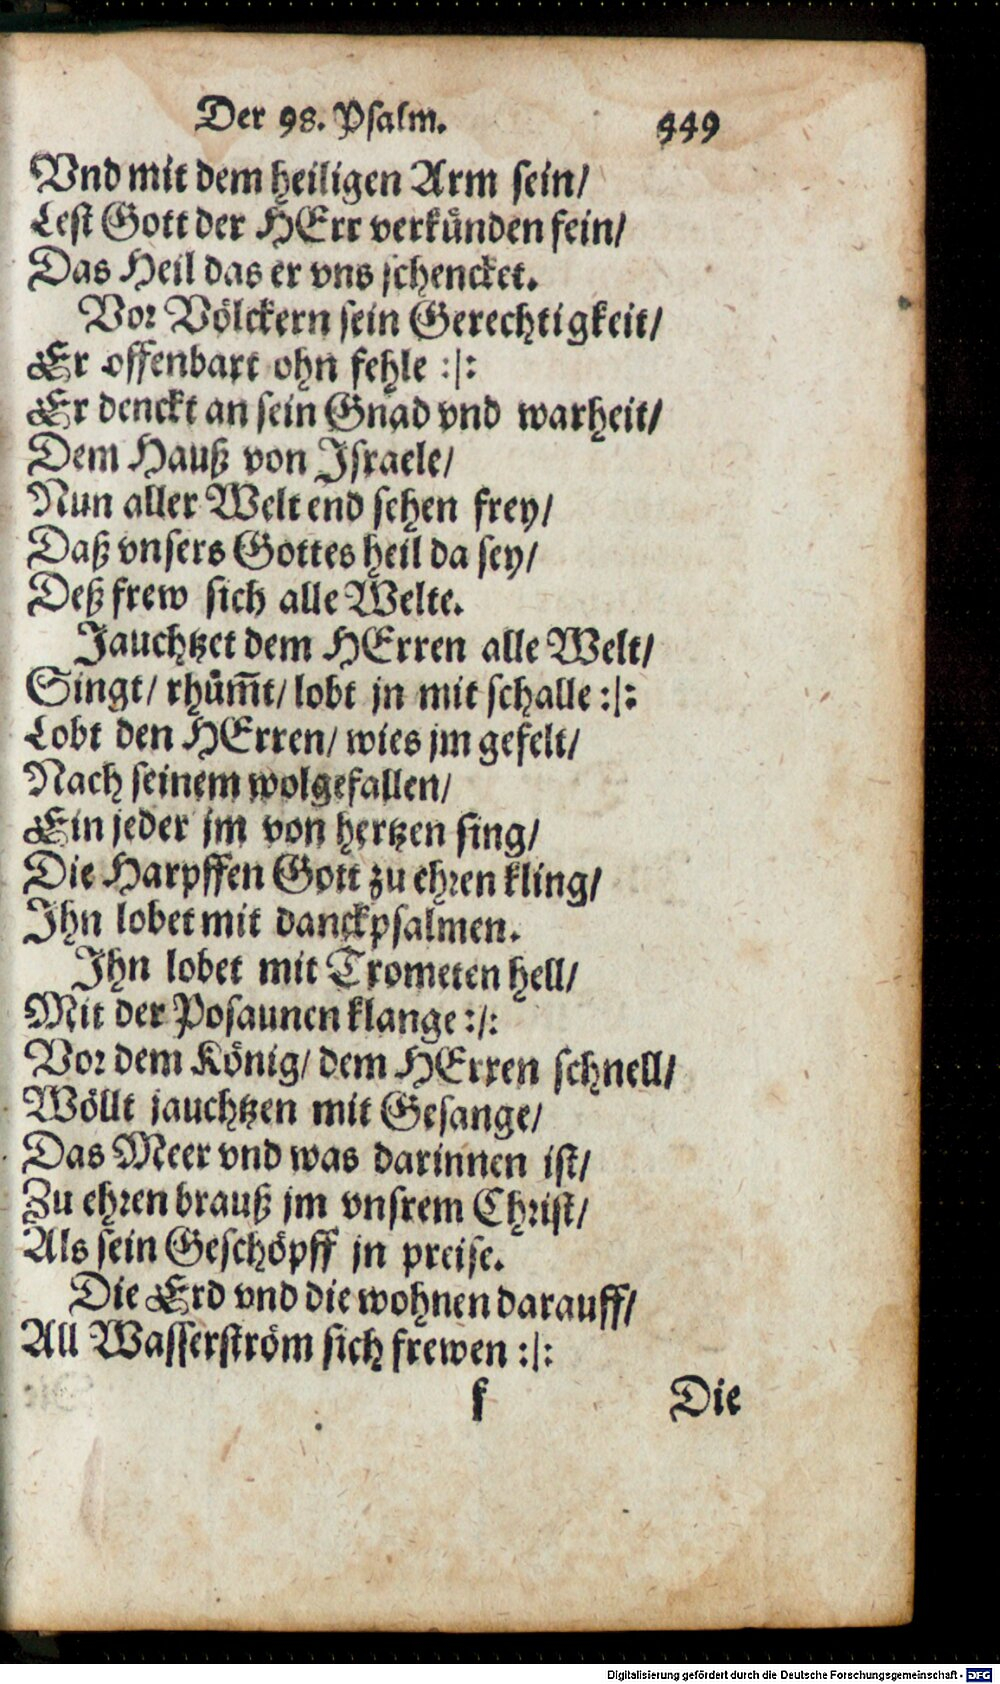 Der 98. Psalm. 449
Vnd mit dem heiligen Arm sein/
Lest Gott der HErr verkünden fein/
Das Heil das er vns schencket.
Vor Völckern sein Gerechtigkeit/
Er offenbart ohn fehle :|:
Er denckt an sein Gnad vnd warheit/
Dem Hauß von Israele/
Nun aller Welt end sehen frey/
Daß vnsers Gottes heil da sey/
Deß frew sich alle Welte.
Jauchtzet dem HErren alle Welt/
Singt/ rhüm̃t/ lobt jn mit schalle :|:
Lobt den HErren/ wies jm gefelt/
Nach seinem wolgefallen/
Ein jeder jm von hertzen sing/
Die Harpffen Gott zu ehren kling/
Ihn lobet mit danckpsalmen.
Ihn lobet mit Trometen hell/
Mit der Posaunen klange :|:
Vor dem König/ dem HErren schnell/
Wöllt jauchtzen mit Gesange/
Das Meer vnd was darinnen ist/
Zu ehren brauß jm vnsrem Christ/
Als sein Geschöpff jn preise.
Die Erd vnd die wohnen darauff/
All Wasserström sich frewen :|:
f Die
Digitalisierung gefördert durch die Deutsche Forschungsgemeinschaft - DFG